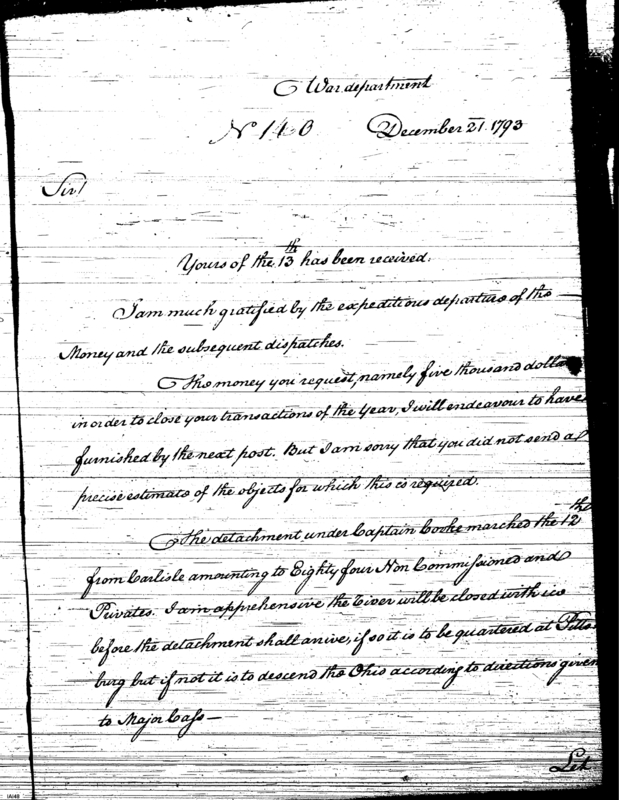 War department
No 140 December 21. 1793
Sir!
Yours of the 13th has been received.
I am much gratified by the expeditious departure of the
Money and the subsequent dispatches.
The money you request, namely five thousand dolla
in order to close your transactions of the Year, I will endeavour to have
furnished by the next post. But I am sorry that you did not send a
precise estimate of the objects for which this is required.
The detachment under Captain Cooke marched the 12th
from Carlisle amounting to Eighty four Non Commissioned and
Privates. I am apprehensive the River will be closed with ice
before the detachment shall arrive, if so it is to be quartered at Pitts
burg but if not it is to descend the Ohio according to directions given
to Major Cass —
Let